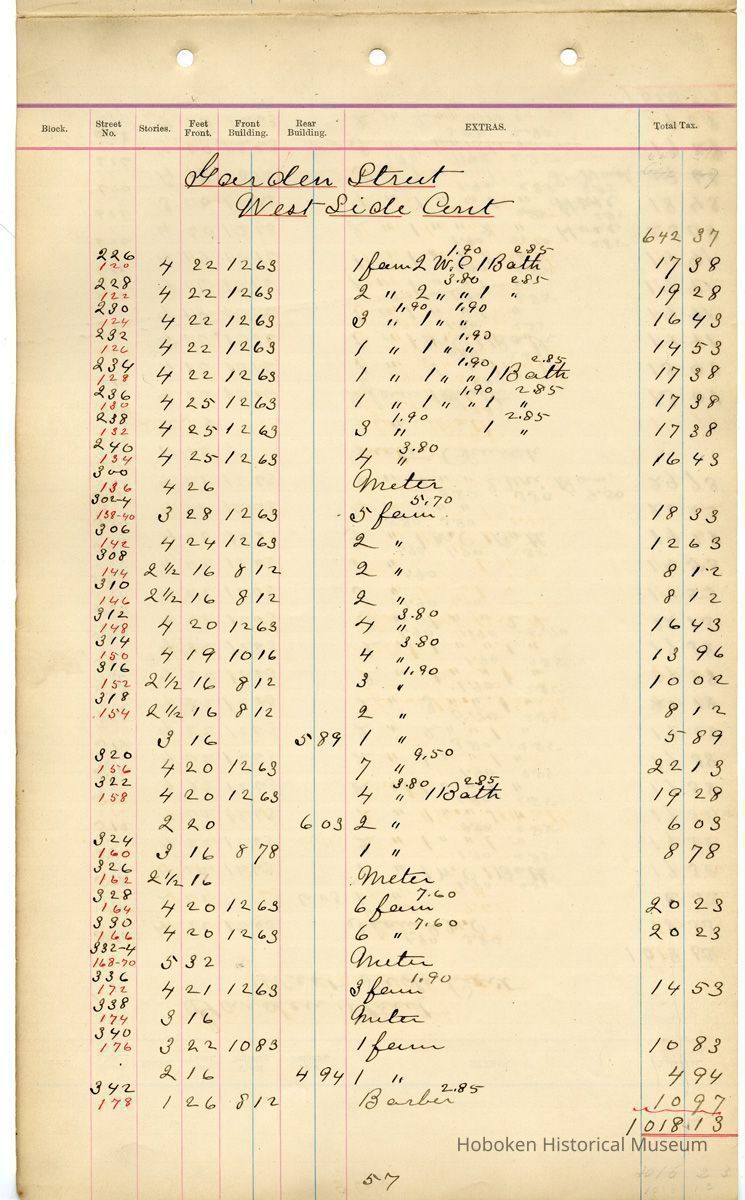 Block. Street No. Stories. Feet Front. Front Building. Rear Building. EXTRAS. Total Tax.
Garden Street
West Side Cont
642 37
226 120 4 22 12 63 1 fam 2 W.C 1.90 1 Bath 2.85 17 38
228 122 4 22 12 63 2 " 2 " 3.80 " 1 " 2.85 19 28
230 124 4 22 12 63 3 " 1.90 1 " " 1.90 16 43
232 126 4 22 12 63 1 " 1 " " 1.90 14 53
234 128 4 22 12 63 1 " 1 " " 1.90 1 Bath 2.85 17 38
236 130 4 25 12 63 1 " 1 " " 1.90 1 " 2.85 17 38
238 132 4 25 12 63 3 " 1.90 1 " 2.85 17 38
240 134 4 25 12 63 4 " 3.80 16 43
300 136 4 26 Meter
302-4 138-40 3 28 12 63 5 fam 5.70 18 33
306 142 4 24 12 63 2 " 12 63
308 144 2 1/2 16 8 12 2 " 8 12
310 146 2 1/2 16 8 12 2 " 8 12
312 148 4 20 12 63 4 " 3.80 16 43
314 150 4 19 10 16 4 " 3.80 13 96
316 152 2 1/2 16 8 12 3 " 1.90 10 02
318 154 2 1/2 16 8 12 2 " 8 12
3 16 5 89 1 " 5 89
320 156 4 20 12 63 7 " 9.50 22 13
322 158 4 20 12 63 4 " 3.80 1 Bath 2.85 19 28
2 20 6 03 2 " 6 03
324 160 3 16 8 78 1 " 8 78
326 162 2 1/2 16 Meter
328 164 4 20 12 63 6 fam 7.60 20 23
330 166 4 20 12 63 6 " 7.60 20 23
332-4 168-70 5 32 Meter
336 172 4 21 12 63 3 fam 1.90 14 53
338 174 3 16 Meter
340 176 3 22 10 83 1 fam 10 83
2 16 4 94 1 " 4 94
342 178 1 26 8 12 Barber 2.85 10 97
1 018 13
Hoboken Historical Museum
57